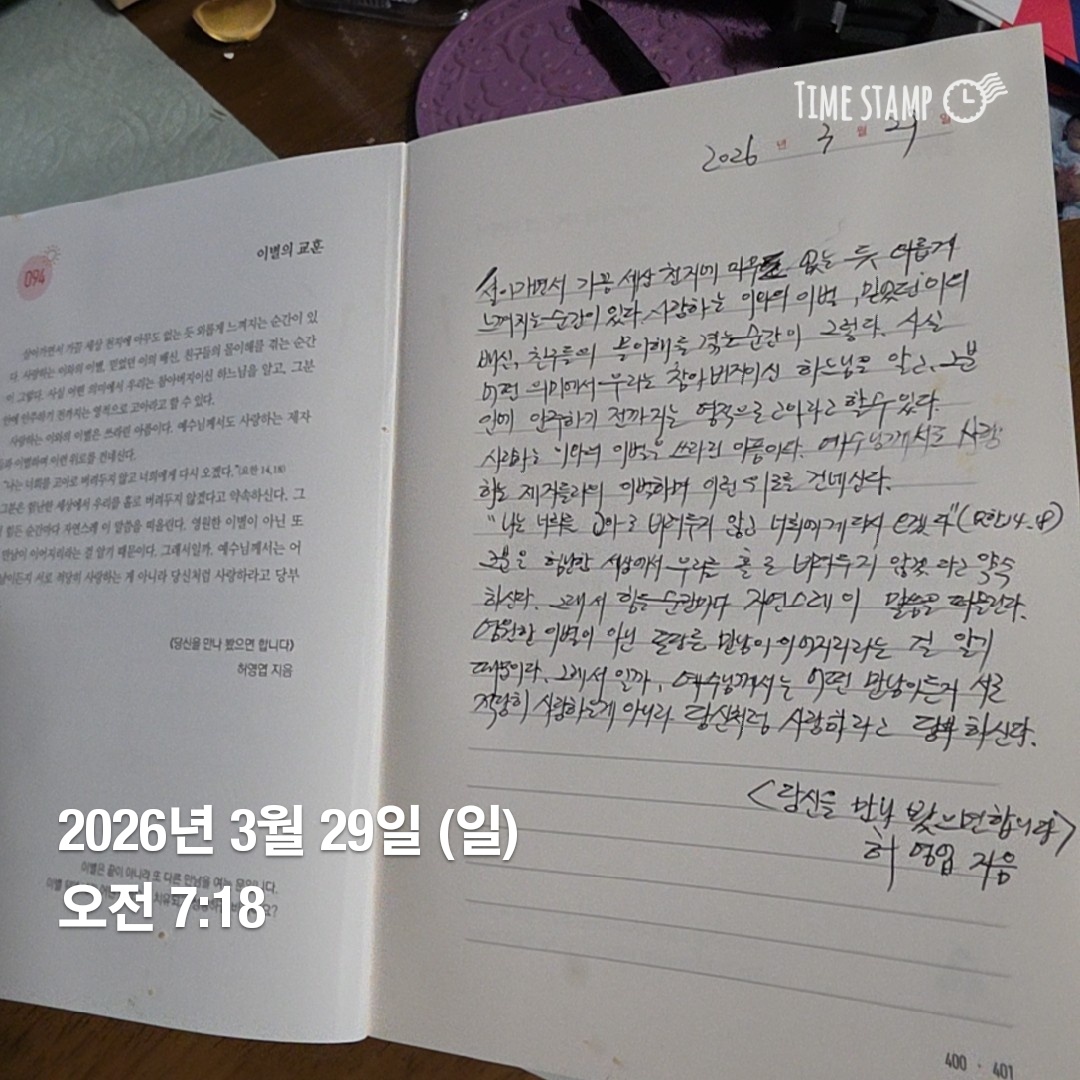 TIME STAMP
2026 년 3 월 29 일
이별의 교훈
094
살아가면서 가끔 세상 천지에 아무도 없는 듯 외롭게 느껴지는 순간이 있
다. 사랑하는 이와의 이별, 믿었던 이의 배신, 친구들의 몰이해를 겪는 순간
이 그렇다. 사실 어떤 의미에서 우리는 참아버지이신 하느님을 알고, 그분
안에 안주하기 전까지는 영적으로 고아라고 할 수 있다.
사랑하는 이와의 이별은 쓰라린 아픔이다. 예수님께서도 사랑하는 제자
이별하며 이런 위로를 건네신다.
"나는 너희를 고아로 버려두지 않고 너희에게 다시 오겠다."(요한 14,18)
그분은 험난한 세상에서 우리를 홀로 버려두지 않겠다고 약속하신다. 그
힘든 순간마다 자연스레 이 말씀을 떠올린다. 영원한 이별이 아닌 또
만남이 이어지리라는 걸 알기 때문이다. 그래서일까, 예수님께서는 어
서로 적당히 사랑하는 게 아니라 당신처럼 사랑하라고 당부
《당신을 만나 봤으면 합니다》
허영엽 지음
이별은 끝이 아니라 또 다른 만남을 여는 문입니다.
살아가면서 가끔 세상 천지에 아무도 없는 듯 외롭게
느껴지는 순간이 있다. 사랑하는 이와의 이별, 믿었던 이의
배신, 친구들의 몰이해를 겪는 순간이 그렇다. 사실
어떤 의미에서 우리는 참아버지이신 하느님을 알고, 그분
안에 안주하기 전까지는 영적으로 고아라고 할 수 있다.
사랑하는 이와의 이별은 쓰라린 아픔이다. 예수님께서도 사랑
하는 제자들과의 이별하며 이런 위로를 건네신다.
"나는 너희를 고아로 버려두지 않고 너희에게 다시 오겠다"(요한14.18)
그분은 험난한 세상에서 우리를 홀로 버려두지 않겠다고 약속
하신다. 그래서 힘든 순간마다 자연스레 이 말씀을 떠올린다.
영원한 이별이 아닌 또다른 만남이 이어지리라는 걸 알기
때문이다. 그래서 일까, 예수님께서는 어떤 만남이든지 서로
적당히 사랑하는게 아니라 당신처럼 사랑하라고 당부 하신다.
<당신을 만나 봤으면 합니다>
허영엽 지음
2026년 3월 29일 (일)
오전 7:18
400 · 401